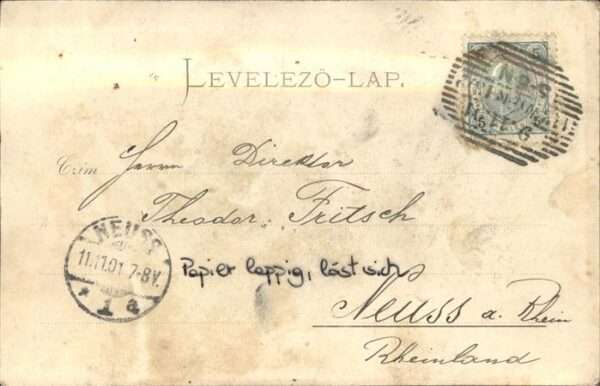 LEVELEZŐ-LAP.
Czim
Herrn Direktor
Theodor Fritsch
NEUSS
11.11.01 7-8V.
* 1 a
Papier lappig, löst sich
Neuss a. Rhein
Rheinland